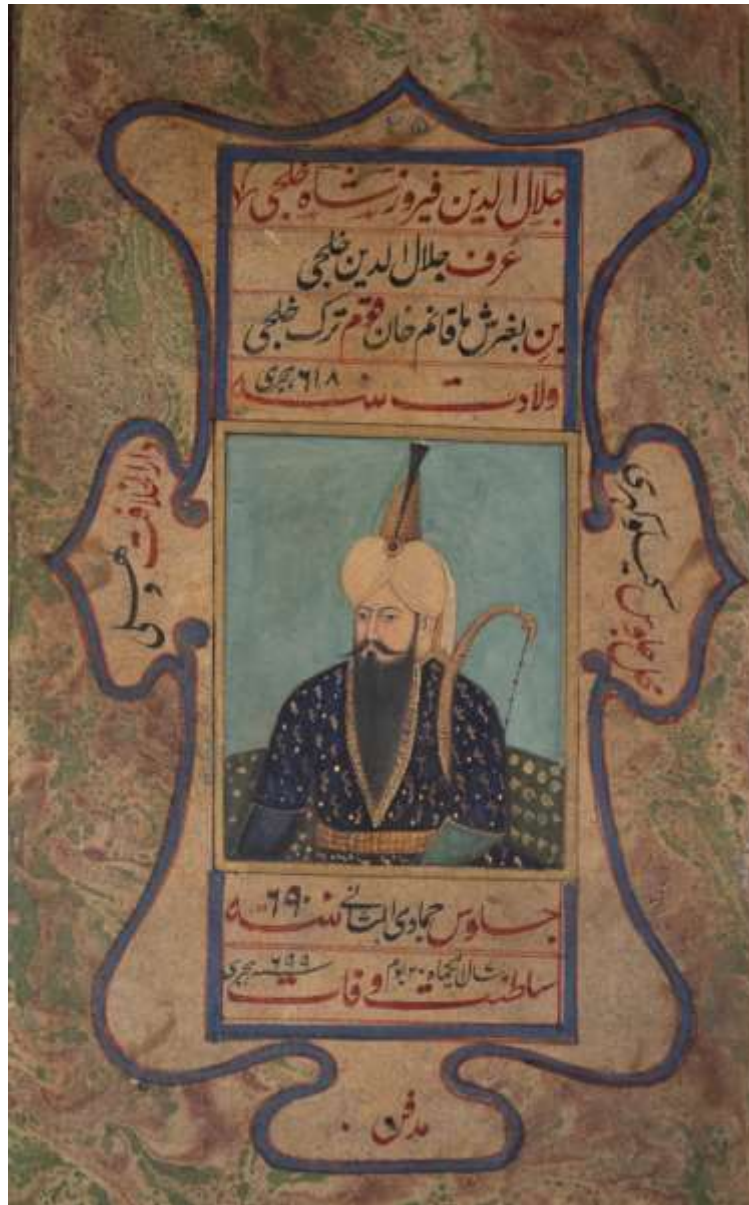 جلال الدین فیروز شاه خلجی
عرف جلال الدین خلجی
بن بغرش ما قائم خان قوم ترک خلجی
ولادت سنه ۶۱۸ هجری
دار الخلافت دهلی
محل جلوس کیلوکهری
جلوس جمادی الثانی سنه ۶۹۰
سلطنت سال یکماه ۲۰ یوم وفات ۶۹۵ هجری
مدفن